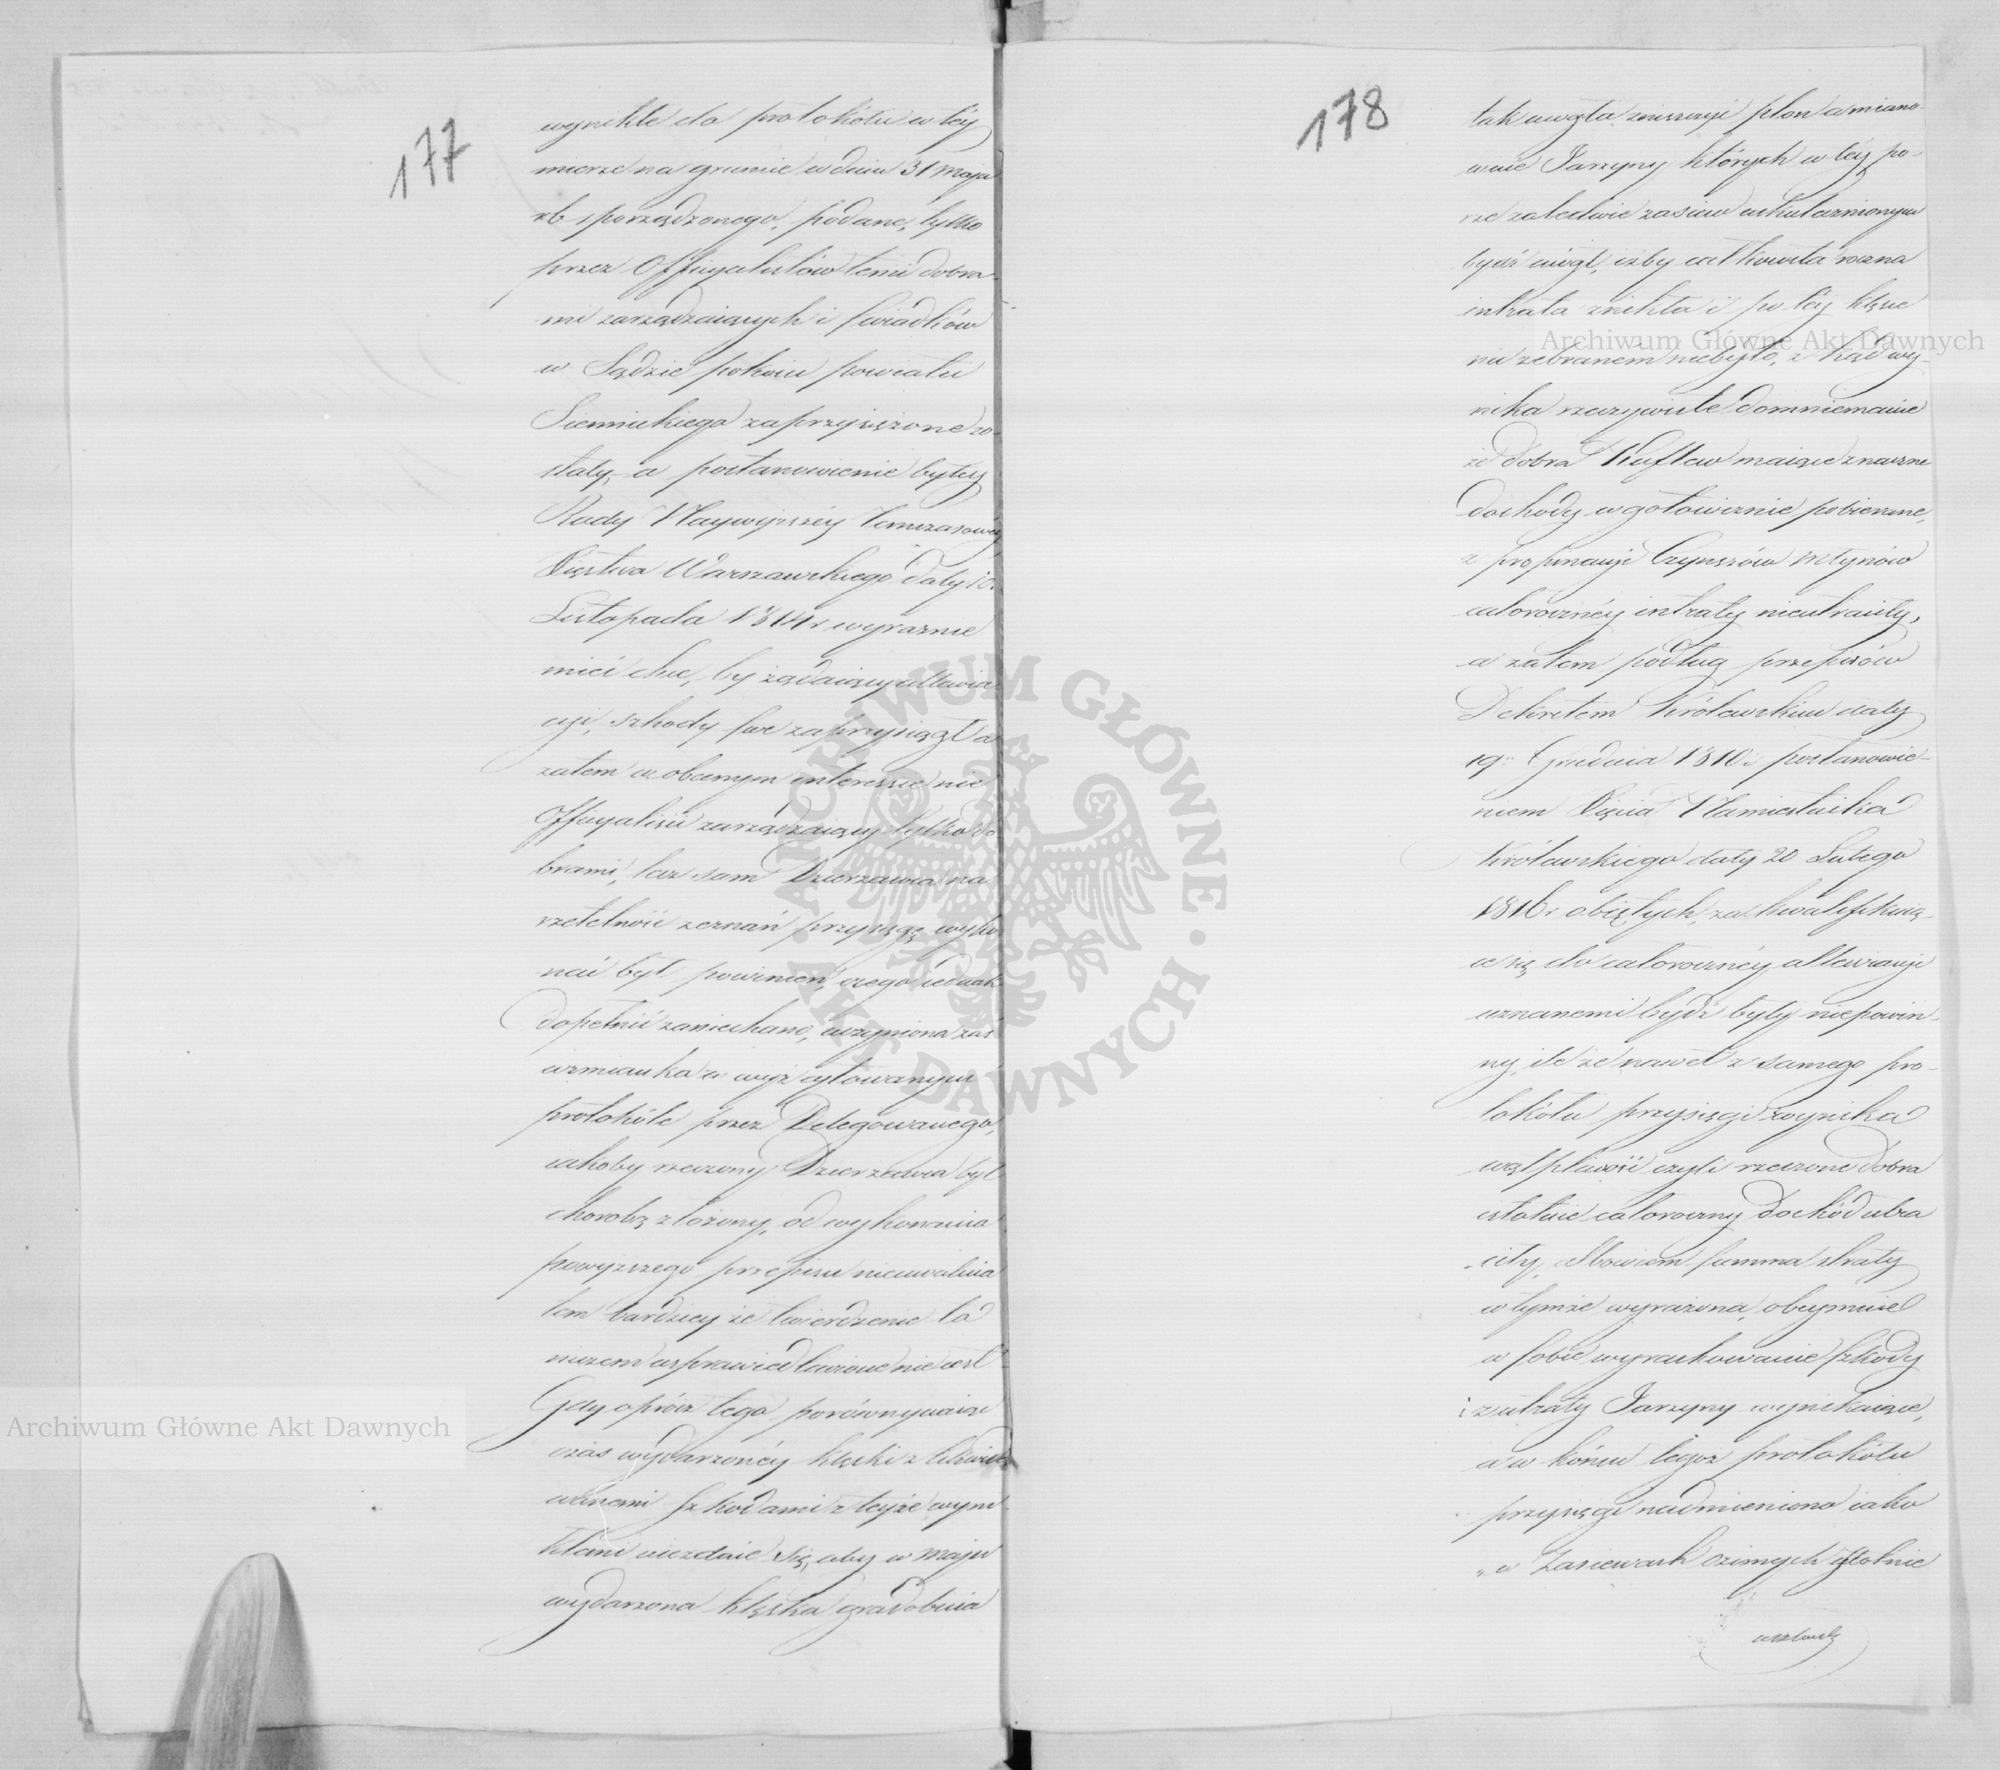 177
wynikłe do protokółu w tey
mierze na gruncie w dniu 31 Maja
rb sporządzonego, podane, tylko
przez Officyalistów temi dobra-
mi zarządzaiących i świadków
w Sądzie pokoiu powiatu
Siennickiego zaprzysiężone zo-
stały, a postanowienie byłey
Rady Naywyższéy Tymczasowéy
Xięstwa Warszawskiego daty 10.
Listopada 1814 r wyraznie
mieć chce, by żądaiący allewia-
cyi, szkody swe zaprzysiągł a
zatem w obecnym interessie nie
Officyaliści zarządzaiący tylko do-
brami, lecz sam Dzierzawca na
rzetelność zeznań przysięgę wyko-
nać był powinien, czego iednak
dopełnić zaniechano, uczyniona zaś
wzmianka w wyż cytowanym
protokóle przez Delegowanego,
iakoby rzeczony Dzierzawca był
chorobą złożony, od wykonania
powyższego przepisu nieuwalnia
tem bardziey że twierdzenie to
niczem usprawiedliwione nie iest
Gdy oprócz tego porównywaiąc
czas wydarzonéy klęski z likwido-
wanemi szkodami z teyże wyni-
kłemi niezdaie się, aby w Maju
wydarzona klęska gradobicia
178
tak uwzięta zniszczyć plon a miano-
wicie Jarzyny których w tey po-
rze zaledwie zasiew uskutecznionym
bydź mógł, iżby całkowita roczna
intrata znikła i po tey klęsce
nic zebranem niebyło, z kąd wy-
nika rzeczywiste domniemanie
że dobra Kuflew maiące znaczne
dochody w gotowiznie pobierane,
z propinacyi Czynszów Młynów
całorocznéy intraty nieutraciły,
a zatem podług przepisów
Dekretem Królewskim daty
19 Grudnia 1810 i postanowie-
niem Xięcia Namiestnika
Królewskiego daty 20 Lutego
1816 r obiętych, za kwalifikuią-
ce się do całorocznéy allewiacyi
uznanemi bydź były niepowin-
ny, ile że nawet z samego pro-
tokółu przysięgi wynika
wątpliwość czyli rzeczone dobra
istotnie całoroczny dochód utra-
ciły, albowiem summa straty
w tymże wyrażona, obeymuie
w sobie wyrachowanie szkody
i z utraty Jarzyny wynikaiące,
a w końcu tegoż protokółu
przysięgi nadmieniono iako
„w Zasiewach ozimych istotnie
Archiwum Główne Akt Dawnych
Archiwum Główne Akt Dawnych
ARCHIWUM GŁÓWNE · AKT DAWNYCH ·